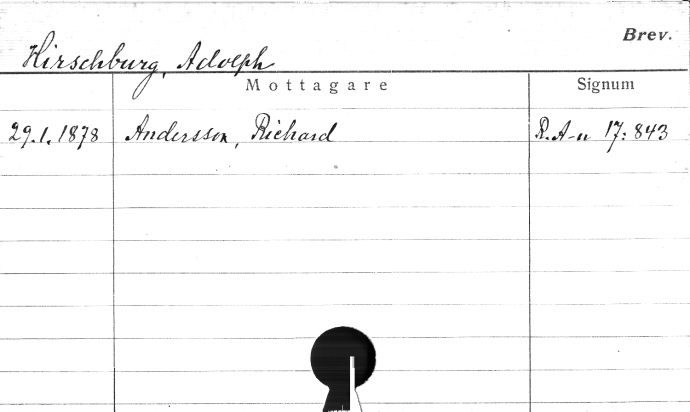 Brev.
Hirschburg, Adolph
Mottagare Signum
29.1.1878 Andersson, Richard R.A-n 17:843